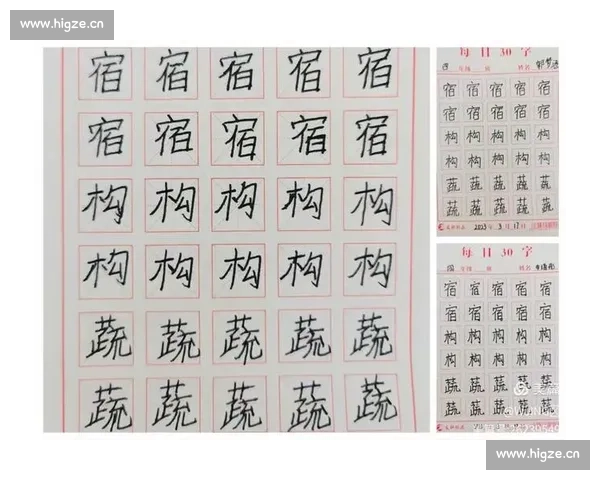 www.higze.cn
宿 宿 宿 宿 宿
宿 宿 宿 宿 宿
构 构 构 构 构
构 构 构 构 构
蔬 蔬 蔬 蔬 蔬
蔬 蔬 蔬 蔬 蔬
每日30字
四 年级 班 姓名
宿 宿 宿 宿 宿
宿 宿 宿 宿 宿
构 构 构 构 构
构 构 构 构 构
蔬 蔬 蔬 蔬 蔬
蔬 蔬 蔬 蔬 蔬
2023年3月17日
每日30字
四 年级 班 姓名
宿 宿 宿 宿 宿
宿 宿 宿 宿 宿
构 构 构 构 构
构 构 构 构 构
蔬 蔬 蔬 蔬 蔬
蔬 蔬 蔬 蔬 蔬
www.higze.cn